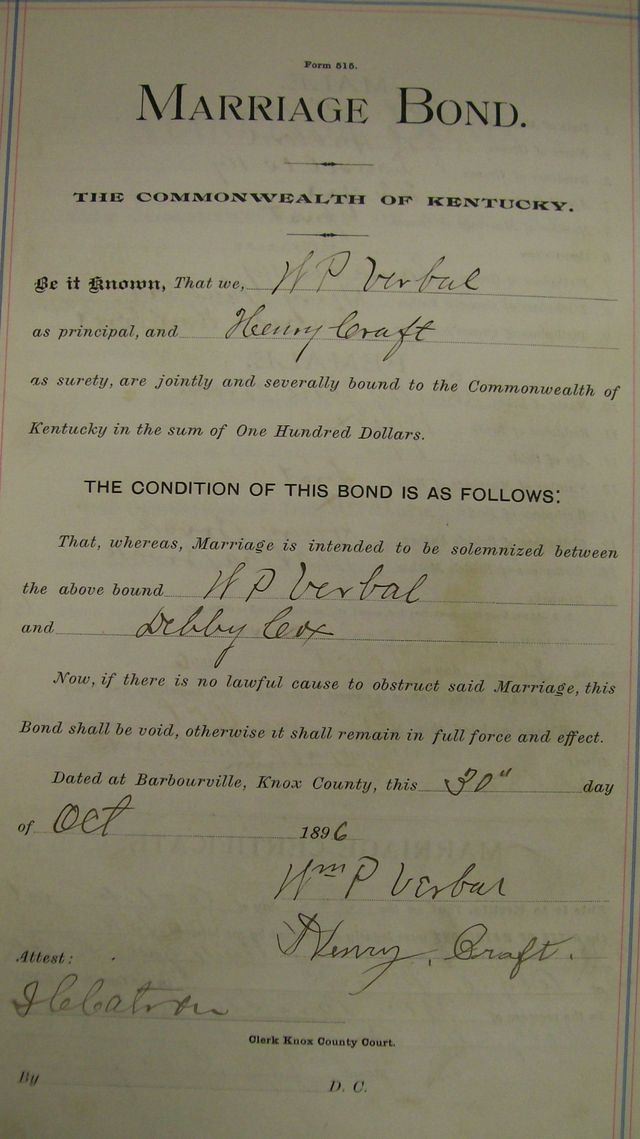 Form 515.
MARRIAGE BOND.
THE COMMONWEALTH OF KENTUCKY.
Be it Known, That we, W P Verbal
as principal, and Henry Craft
as surety, are jointly and severally bound to the Commonwealth of
Kentucky in the sum of One Hundred Dollars.
THE CONDITION OF THIS BOND IS AS FOLLOWS:
That, whereas, Marriage is intended to be solemnized between
the above bound W P Verbal
and Debby Cox
Now, if there is no lawful cause to obstruct said Marriage, this
Bond shall be void, otherwise it shall remain in full force and effect.
Dated at Barbourville, Knox County, this 30" day
of Oct 1896
Wm P Verbal
Henry Craft.
Attest:
Catron
Clerk Knox County Court.
By D. C.